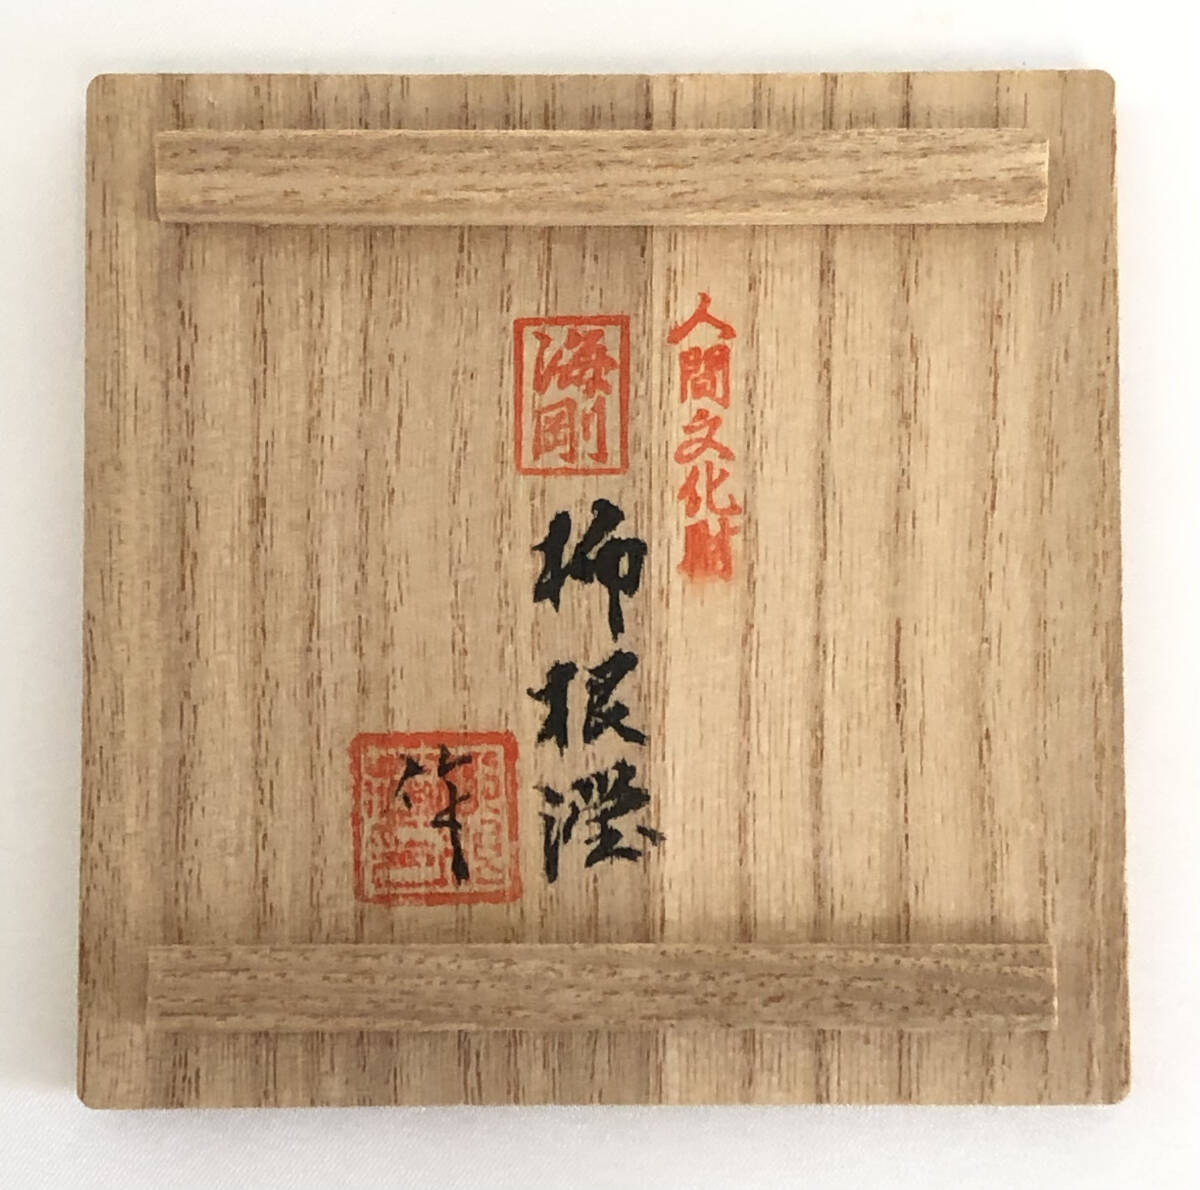 人間文化財
海剛
柳根瀅
作